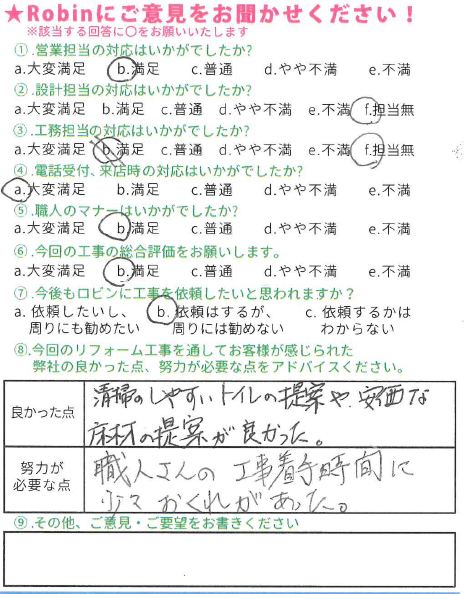 ★Robinにご意見をお聞かせください！
※該当する回答に〇をお願いいたします
①.営業担当の対応はいかがでしたか?
a.大変満足 b.満足 c.普通 d.やや不満 e.不満
②.設計担当の対応はいかがでしたか?
a.大変満足 b.満足 c.普通 d.やや不満 e.不満 f.担当無
③.工務担当の対応はいかがでしたか?
a.大変満足 b.満足 c.普通 d.やや不満 e.不満 f.担当無
④.電話受付、来店時の対応はいかがでしたか?
a.大変満足 b.満足 c.普通 d.やや不満 e.不満
⑤.職人のマナーはいかがでしたか?
a.大変満足 b.満足 c.普通 d.やや不満 e.不満
⑥.今回の工事の総合評価をお願いします。
a.大変満足 b.満足 c.普通 d.やや不満 e.不満
⑦.今後もロビンに工事を依頼したいと思われますか？
a. 依頼したいし、 b. 依頼はするが、 c. 依頼するかは
周りにも勧めたい 周りには勧めない わからない
⑧.今回のリフォーム工事を通してお客様が感じられた
弊社の良かった点、努力が必要な点をアドバイスください。
良かった点
清掃のしやすいトイレの提案や、安価な
床材の提案が良かった。
努力が
必要な点
職人さんの工事着手時間に
少々おくれがあった。
⑨.その他、ご意見・ご要望をお書きください